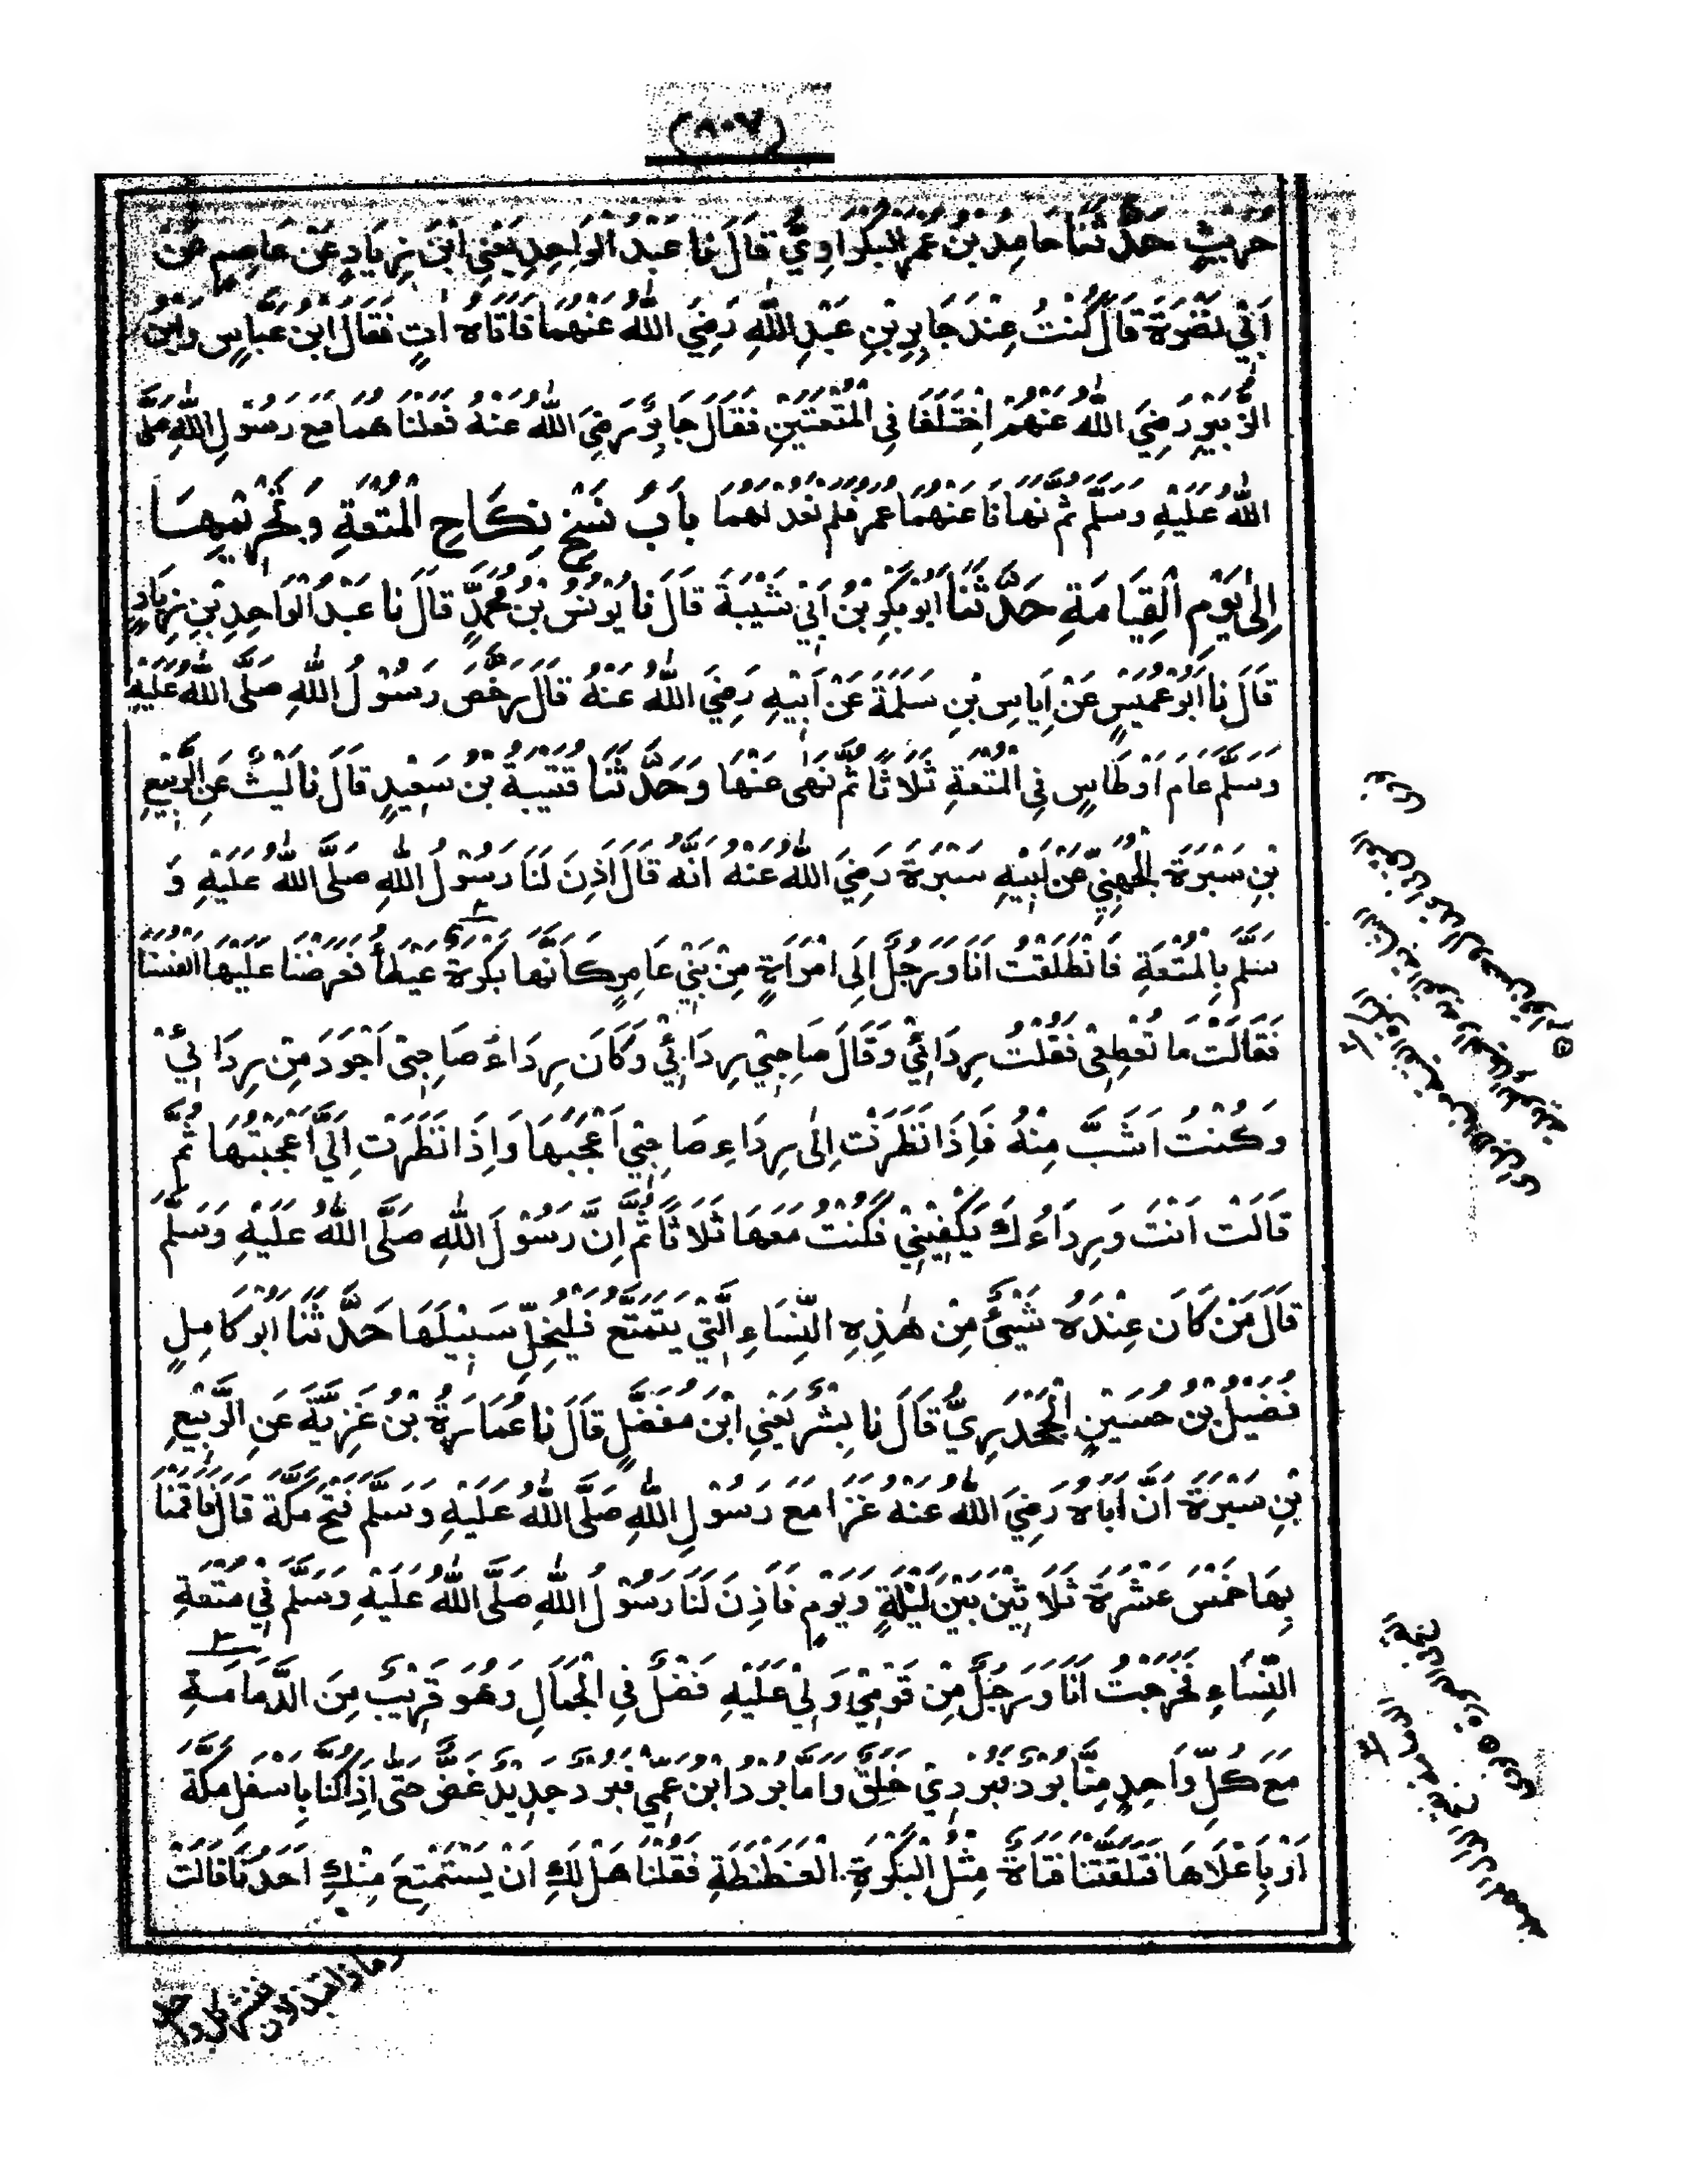 (٨٠٧)
حُرَيْثٍ حَدَّثَنَا حَامِدُ بْنُ عُمَرَ الْبَكْرَاوِيُّ قَالَ نَا عَبْدُ الْوَاحِدِ يَعْنِي ابْنَ زِيَادٍ عَنْ عَاصِمٍ عَنْ
اَبِيْ نَضْرَةَ قَالَ كُنْتُ عِنْدَ جَابِرِ بْنِ عَبْدِ اللّٰهِ رَضِيَ اللّٰهُ عَنْهُمَا فَاَتَاهُ اٰتٍ فَقَالَ ابْنُ عَبَّاسٍ وَابْنُ
الزُّبَيْرِ رَضِيَ اللّٰهُ عَنْهُمْ اخْتَلَفَا فِي الْمُتْعَتَيْنِ فَقَالَ جَابِرٌ رَضِيَ اللّٰهُ عَنْهُ فَعَلْنَاهُمَا مَعَ رَسُوْلِ اللّٰهِ صَلَّى
اللّٰهُ عَلَيْهِ وَسَلَّمَ ثُمَّ نَهَانَا عَنْهُمَا عُمَرُ فَلَمْ نَعُدْ لَهُمَا بَابُ نَسْخِ نِكَاحِ الْمُتْعَةِ وَتَحْرِيْمِهَا
اِلٰى يَوْمِ الْقِيَامَةِ حَدَّثَنَا اَبُوْ بَكْرِ بْنُ اَبِيْ شَيْبَةَ قَالَ نَا يُوْنُسُ بْنُ مُحَمَّدٍ قَالَ نَا عَبْدُ الْوَاحِدِ بْنِ زِيَادٍ
قَالَ نَا اَبُوْ عُمَيْسٍ عَنْ اِيَاسِ بْنِ سَلَمَةَ عَنْ اَبِيْهِ رَضِيَ اللّٰهُ عَنْهُ قَالَ رَخَّصَ رَسُوْلُ اللّٰهِ صَلَّى اللّٰهُ عَلَيْهِ
وَسَلَّمَ عَامَ اَوْطَاسٍ فِي الْمُتْعَةِ ثَلَاثًا ثُمَّ نَهٰى عَنْهَا وَحَدَّثَنَا قُتَيْبَةُ بْنُ سَعِيْدٍ قَالَ نَا لَيْثٌ عَنِ الرَّبِيْعِ
بْنِ سَبْرَةَ الْجُهَنِيِّ عَنْ اَبِيْهِ سَبْرَةَ رَضِيَ اللّٰهُ عَنْهُ اَنَّهُ قَالَ اَذِنَ لَنَا رَسُوْلُ اللّٰهِ صَلَّى اللّٰهُ عَلَيْهِ وَ
سَلَّمَ بِالْمُتْعَةِ فَانْطَلَقْتُ اَنَا وَرَجُلٌ اِلَى امْرَاَةٍ مِنْ بَنِيْ عَامِرٍ كَاَنَّهَا بَكْرَةٌ عَيْطَاُ فَعَرَضْنَا عَلَيْهَا اَنْفُسَنَا
فَقَالَتْ مَا تُعْطِيْ فَقُلْتُ رِدَائِيْ وَقَالَ صَاحِبِيْ رِدَائِيْ وَكَانَ رِدَاءُ صَاحِبِيْ اَجْوَدَ مِنْ رِدَائِيْ
وَكُنْتُ اَشَبَّ مِنْهُ فَاِذَا نَظَرَتْ اِلٰى رِدَاءِ صَاحِبِيْ اَعْجَبَهَا وَاِذَا نَظَرَتْ اِلَيَّ اَعْجَبْتُهَا ثُمَّ
قَالَتْ اَنْتَ وَرِدَاءُكَ يَكْفِيْنِيْ فَكُنْتُ مَعَهَا ثَلَاثًا ثُمَّ اِنَّ رَسُوْلَ اللّٰهِ صَلَّى اللّٰهُ عَلَيْهِ وَسَلَّمَ
قَالَ مَنْ كَانَ عِنْدَهُ شَيْئٌ مِنْ هٰذِهِ النِّسَاءِ الَّتِيْ يَتَمَتَّعُ فَلْيُخَلِّ سَبِيْلَهَا حَدَّثَنَا اَبُوْ كَامِلٍ
فُضَيْلُ بْنُ حُسَيْنٍ الْجَحْدَرِيُّ قَالَ نَا بِشْرٌ يَعْنِي ابْنَ مُفَضَّلٍ قَالَ نَا عُمَارَةُ بْنُ غَزِيَّةَ عَنِ الرَّبِيْعِ
بْنِ سَبْرَةَ اَنَّ اَبَاهُ رَضِيَ اللّٰهُ عَنْهُ غَزَا مَعَ رَسُوْلِ اللّٰهِ صَلَّى اللّٰهُ عَلَيْهِ وَسَلَّمَ فَتْحَ مَكَّةَ قَالَ فَاَقَمْنَا
بِهَا خَمْسَ عَشْرَةَ ثَلَاثِيْنَ بَيْنَ لَيْلَةٍ وَيَوْمٍ فَاَذِنَ لَنَا رَسُوْلُ اللّٰهِ صَلَّى اللّٰهُ عَلَيْهِ وَسَلَّمَ فِيْ مُتْعَةِ
النِّسَاءِ فَخَرَجْتُ اَنَا وَرَجُلٌ مِنْ قَوْمِيْ وَلِيْ عَلَيْهِ فَضْلٌ فِي الْجَمَالِ وَهُوَ قَرِيْبٌ مِنَ الدَّمَامَةِ
مَعَ كُلِّ وَاحِدٍ مِنَّا بُرْدٌ فَبُرْدِيْ خَلِقٌ وَاَمَّا بُرْدُ ابْنِ عَمِّيْ فَبُرْدٌ جَدِيْدٌ غَضٌّ حَتّٰى اِذَا كُنَّا بِاَسْفَلِ مَكَّةَ
اَوْ بِاَعْلَاهَا فَتَلَقَّتْنَا فَتَاةٌ مِثْلُ الْبَكْرَةِ الْعَنَطْنَطَةِ فَقُلْنَا هَلْ لَكِ اَنْ يَسْتَمْتِعَ مِنْكِ اَحَدُنَا قَالَتْ